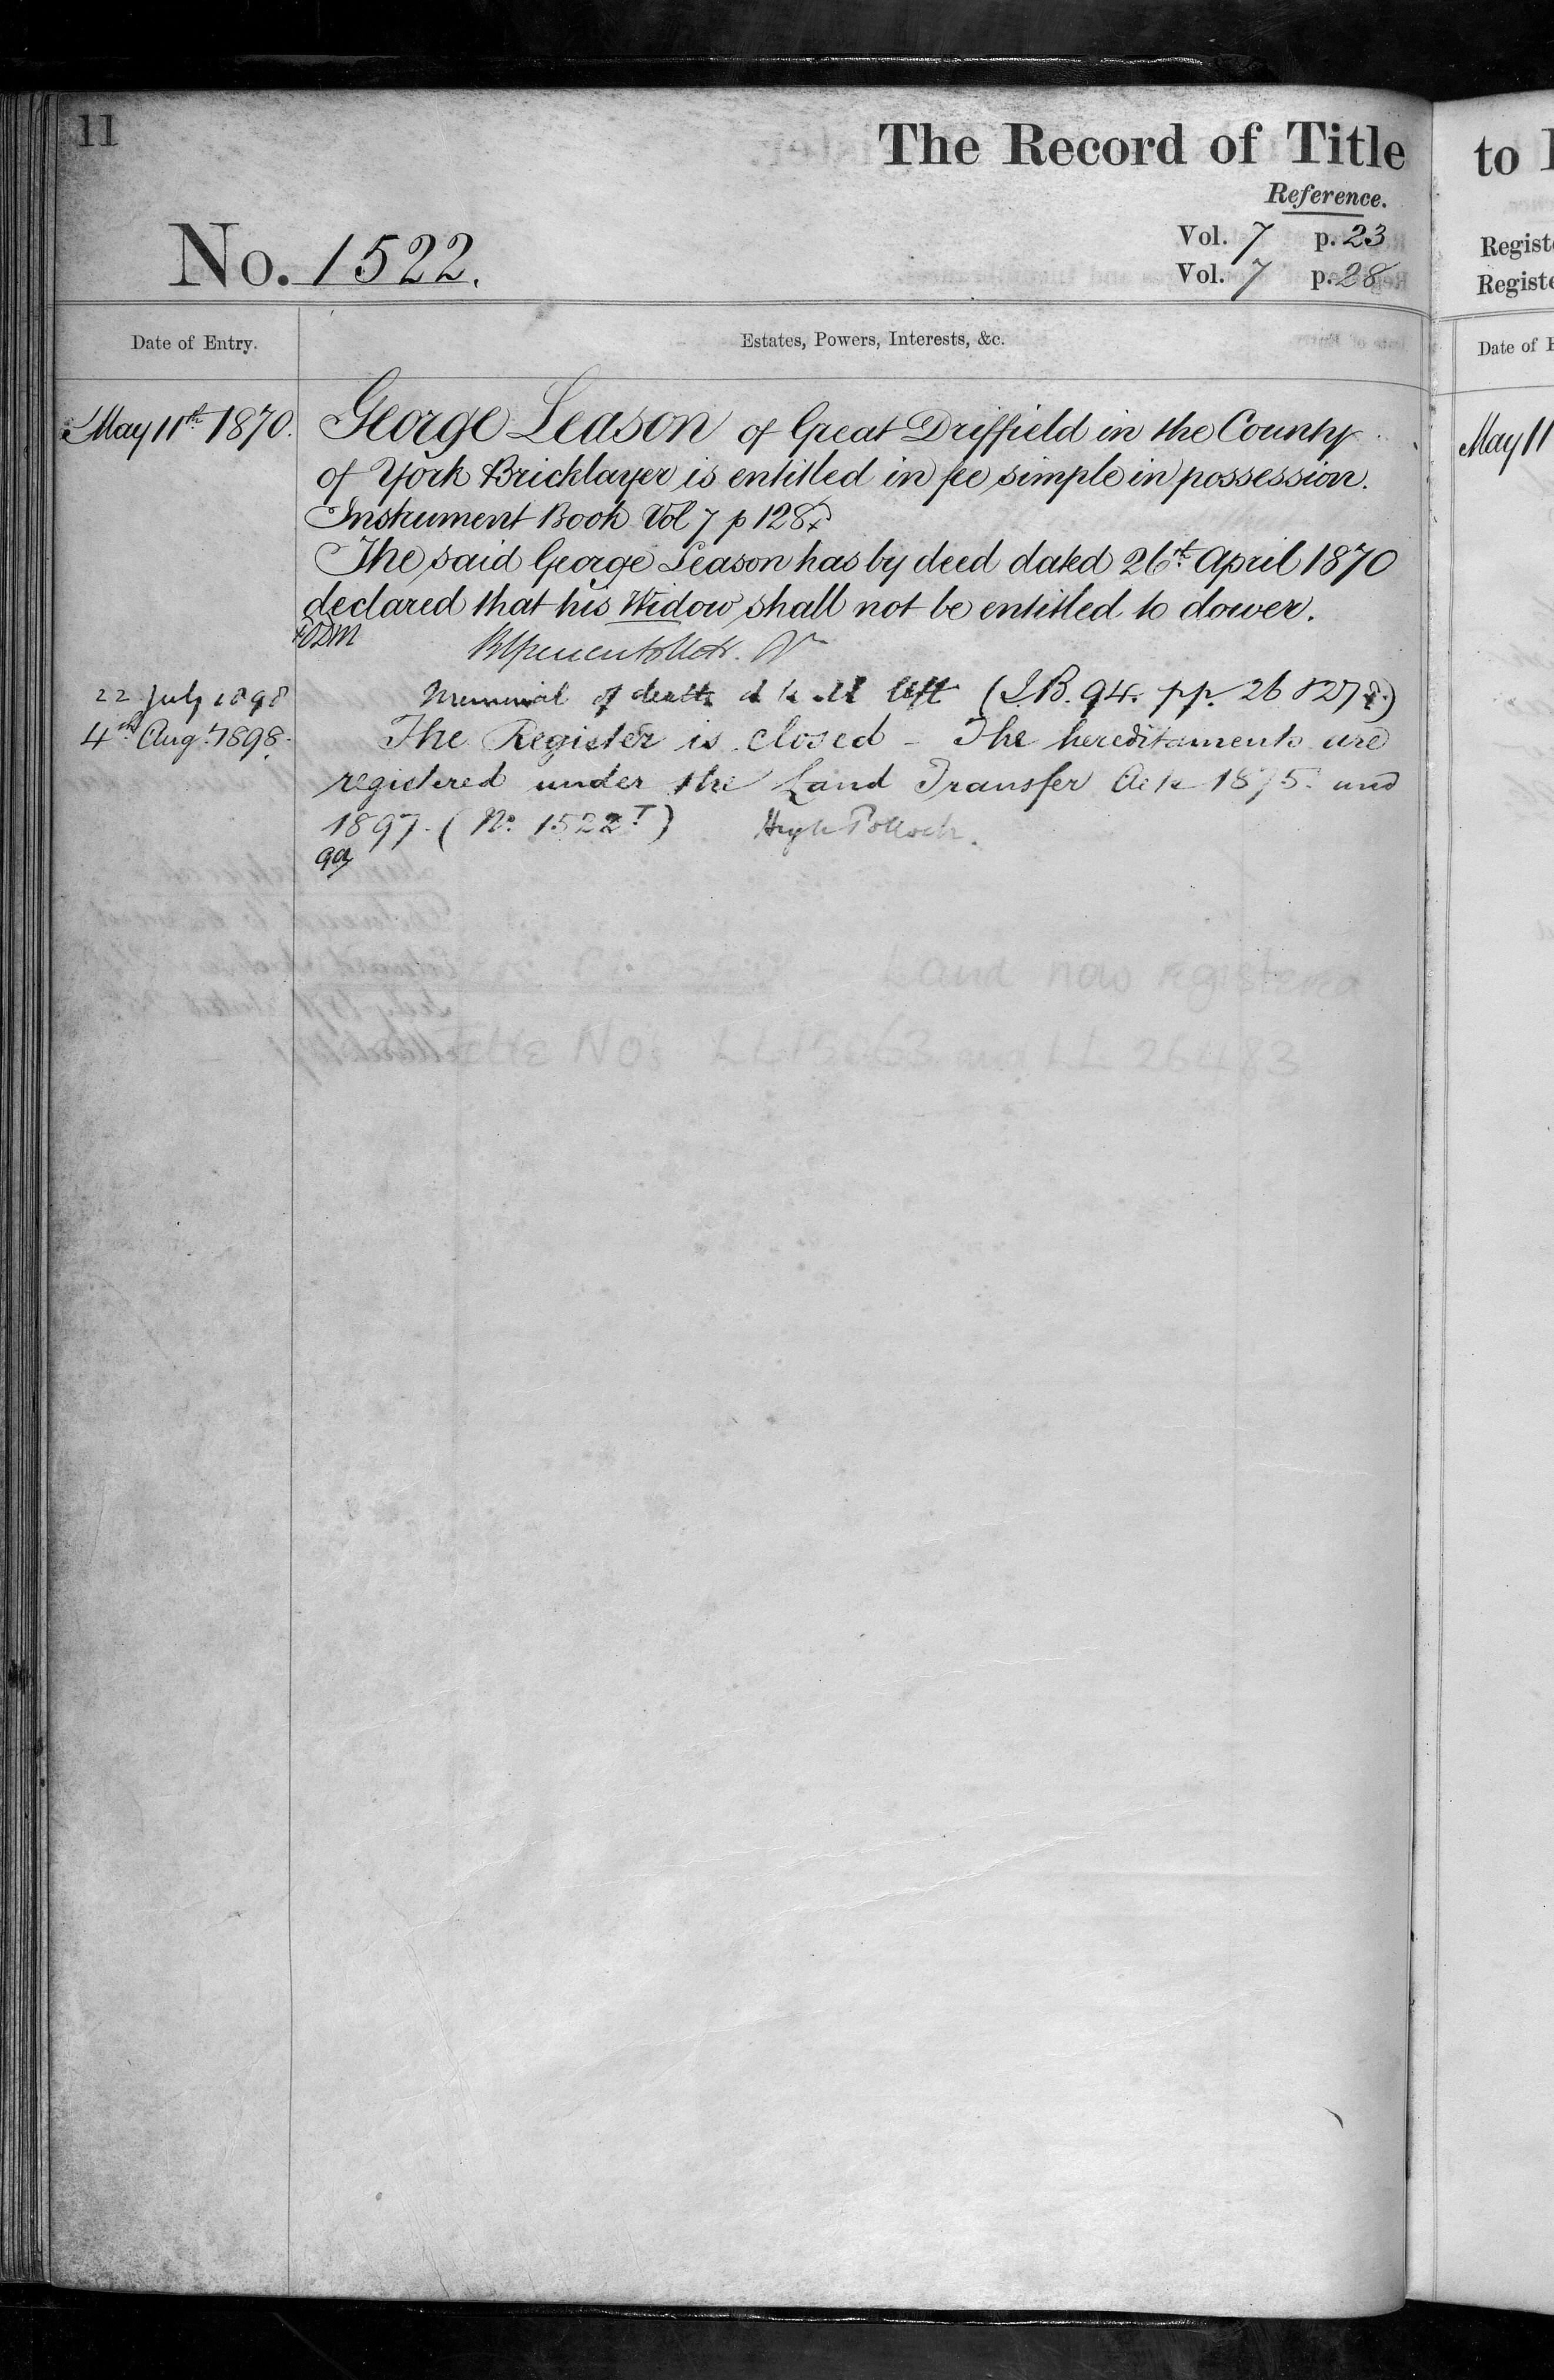 11
The Record of Title
Reference.
No. 1522.
Vol. 7 p. 23
Vol. 7 p. 28
Date of Entry.
Estates, Powers, Interests, &c.
May 11th 1870.
George Leason of Great Driffield in the County
of York Bricklayer is entitled in fee simple in possession.
Instrument Book Vol 7 p 128
The said George Leason has by deed dated 26th April 1870
declared that his Widow shall not be entitled to dower.
22 July 1898
Memorial of death left (I.B. 94. pp. 26 & 27)
4th Aug. 1898.
The Register is closed - The hereditaments are
registered under the Land Transfer Acts 1875 and
1897. (No. 1522 T) Hugh Pollock.
Land now registered
Title Nos and LL 26483
to
Registe
Registe
Date of E
May 11